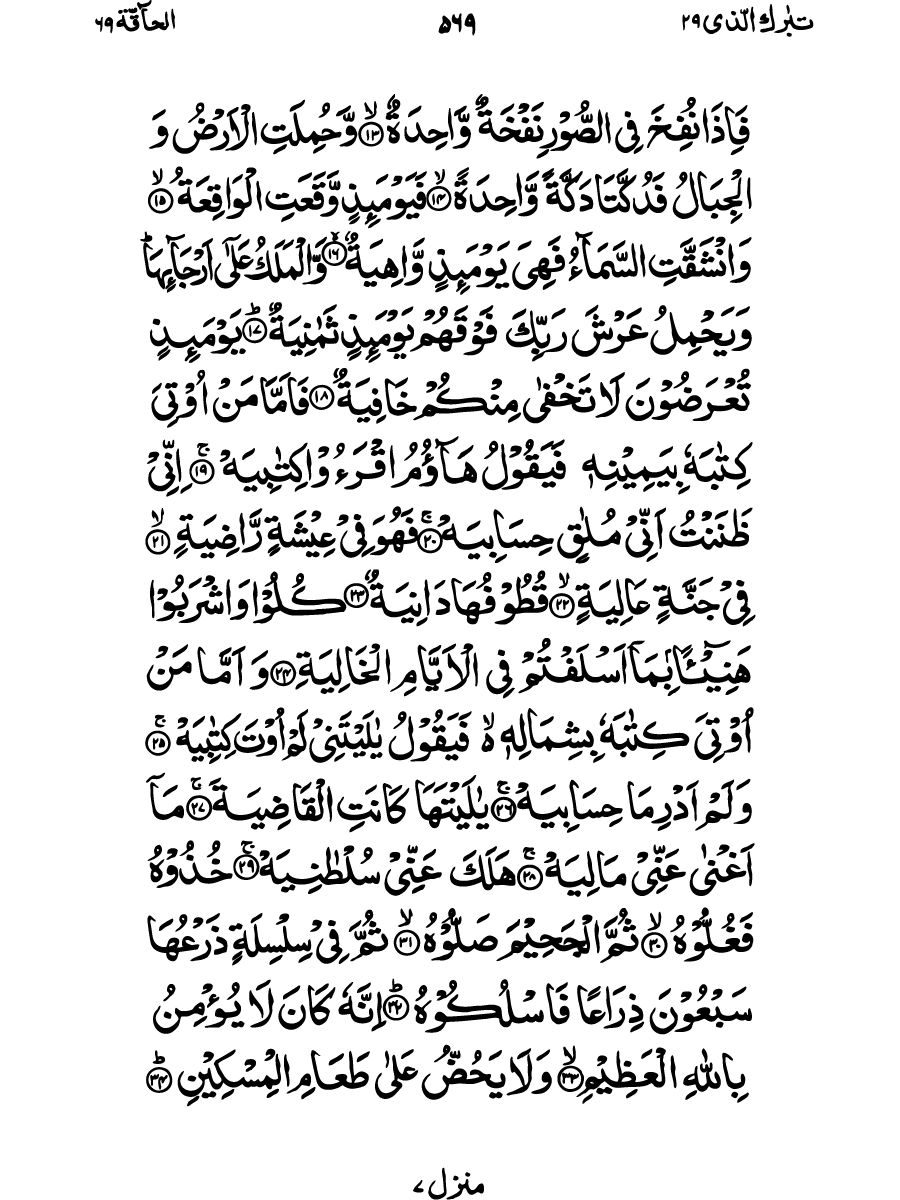 تبٰرك الّذی ٢٩ ۵٦٩ الحآقّة ٦٩
فَاِذَا نُفِخَ فِی الصُّوْرِ نَفْخَةٌ وَّاحِدَةٌ ۙ﴿۱۳﴾ وَّحُمِلَتِ الْاَرْضُ وَ
الْجِبَالُ فَدُكَّتَا دَكَّةً وَّاحِدَةً ۙ﴿۱۴﴾ فَیَوْمَىِٕذٍ وَّقَعَتِ الْوَاقِعَةُ ۙ﴿۱۵﴾
وَ انْشَقَّتِ السَّمَآءُ فَهِیَ یَوْمَىِٕذٍ وَّاهِیَةٌ ۙ﴿۱۶﴾ وَّ الْمَلَكُ عَلٰۤی اَرْجَآىِٕهَا ؕ
وَ یَحْمِلُ عَرْشَ رَبِّكَ فَوْقَهُمْ یَوْمَىِٕذٍ ثَمٰنِیَةٌ ؕ﴿۱۷﴾ یَوْمَىِٕذٍ
تُعْرَضُوْنَ لَا تَخْفٰی مِنْكُمْ خَافِیَةٌ ﴿۱۸﴾ فَاَمَّا مَنْ اُوْتِیَ
كِتٰبَهٗ بِیَمِیْنِهٖ فَیَقُوْلُ هَآؤُمُ اقْرَءُوْا كِتٰبِیَهْ ۚ﴿۱۹﴾ اِنِّیْ
ظَنَنْتُ اَنِّیْ مُلٰقٍ حِسَابِیَهْ ۚ﴿۲۰﴾ فَهُوَ فِیْ عِیْشَةٍ رَّاضِیَةٍ ۙ﴿۲۱﴾
فِیْ جَنَّةٍ عَالِیَةٍ ۙ﴿۲۲﴾ قُطُوْفُهَا دَانِیَةٌ ﴿۲۳﴾ كُلُوْا وَ اشْرَبُوْا
هَنِیْٓـًٔۢا بِمَاۤ اَسْلَفْتُمْ فِی الْاَیَّامِ الْخَالِیَةِ ﴿۲۴﴾ وَ اَمَّا مَنْ
اُوْتِیَ كِتٰبَهٗ بِشِمَالِهٖ ۙ۬ فَیَقُوْلُ یٰلَیْتَنِیْ لَمْ اُوْتَ كِتٰبِیَهْ ۚ﴿۲۵﴾
وَ لَمْ اَدْرِ مَا حِسَابِیَهْ ۚ﴿۲۶﴾ یٰلَیْتَهَا كَانَتِ الْقَاضِیَةَ ۚ﴿۲۷﴾ مَاۤ
اَغْنٰی عَنِّیْ مَالِیَهْ ۚ﴿۲۸﴾ هَلَكَ عَنِّیْ سُلْطٰنِیَهْ ۚ﴿۲۹﴾ خُذُوْهُ
فَغُلُّوْهُ ۙ﴿۳۰﴾ ثُمَّ الْجَحِیْمَ صَلُّوْهُ ۙ﴿۳۱﴾ ثُمَّ فِیْ سِلْسِلَةٍ ذَرْعُهَا
سَبْعُوْنَ ذِرَاعًا فَاسْلُكُوْهُ ؕ﴿۳۲﴾ اِنَّهٗ كَانَ لَا یُؤْمِنُ
بِاللّٰهِ الْعَظِیْمِ ۙ﴿۳۳﴾ وَ لَا یَحُضُّ عَلٰی طَعَامِ الْمِسْكِیْنِ ؕ﴿۳۴﴾
منزل ٧